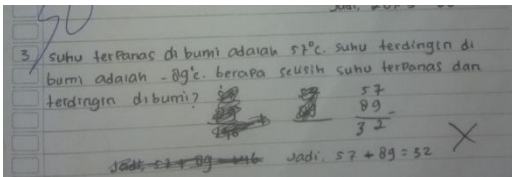 3. suhu terpanas di bumi adalah 57°C. suhu terdingin di
bumi adalah -89°C. berapa selisih suhu terpanas dan
terdingin dibumi?
57
89 -
32
Jadi, 57 + 89 = 146
Jadi, 57 + 89 = 32